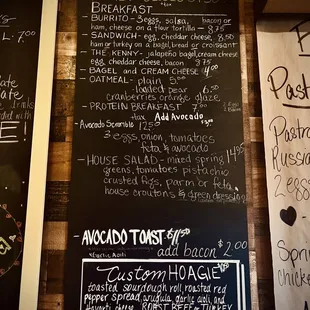 BREAKFAST
- BURRITO - 3 eggs, salsa, bacon or
ham, cheese on a flour tortilla - 8.75
- SANDWICH - egg, cheddar cheese, 8.50
ham or turkey on a bagel, bread or croissant
- THE KENNY - jalapeño bagel, cream cheese
egg, cheddar cheese, bacon 8.75
- BAGEL and CREAM CHEESE 4.00
- OATMEAL - plain 5.00
loaded pear 6.50
cranberries orange glaze
- PROTEIN BREAKFAST 7.00
Add Avocado
- Avocado Scramble 12.50
3 eggs, onion, tomatoes
feta & avocado
- HOUSE SALAD - mixed spring 14.95
greens, tomatoes pistachio
crusted figs, parm or feta
house croutons & green dressing
- AVOCADO TOAST
add bacon $2.00
Custom HOAGIE
toasted sourdough roll, roasted red
pepper spread, arugula, garlic aioli, and
Havarti cheese ROAST BEEF or TURKEY
Past
Pastra
Russia
2 egg
Sprin
chicke